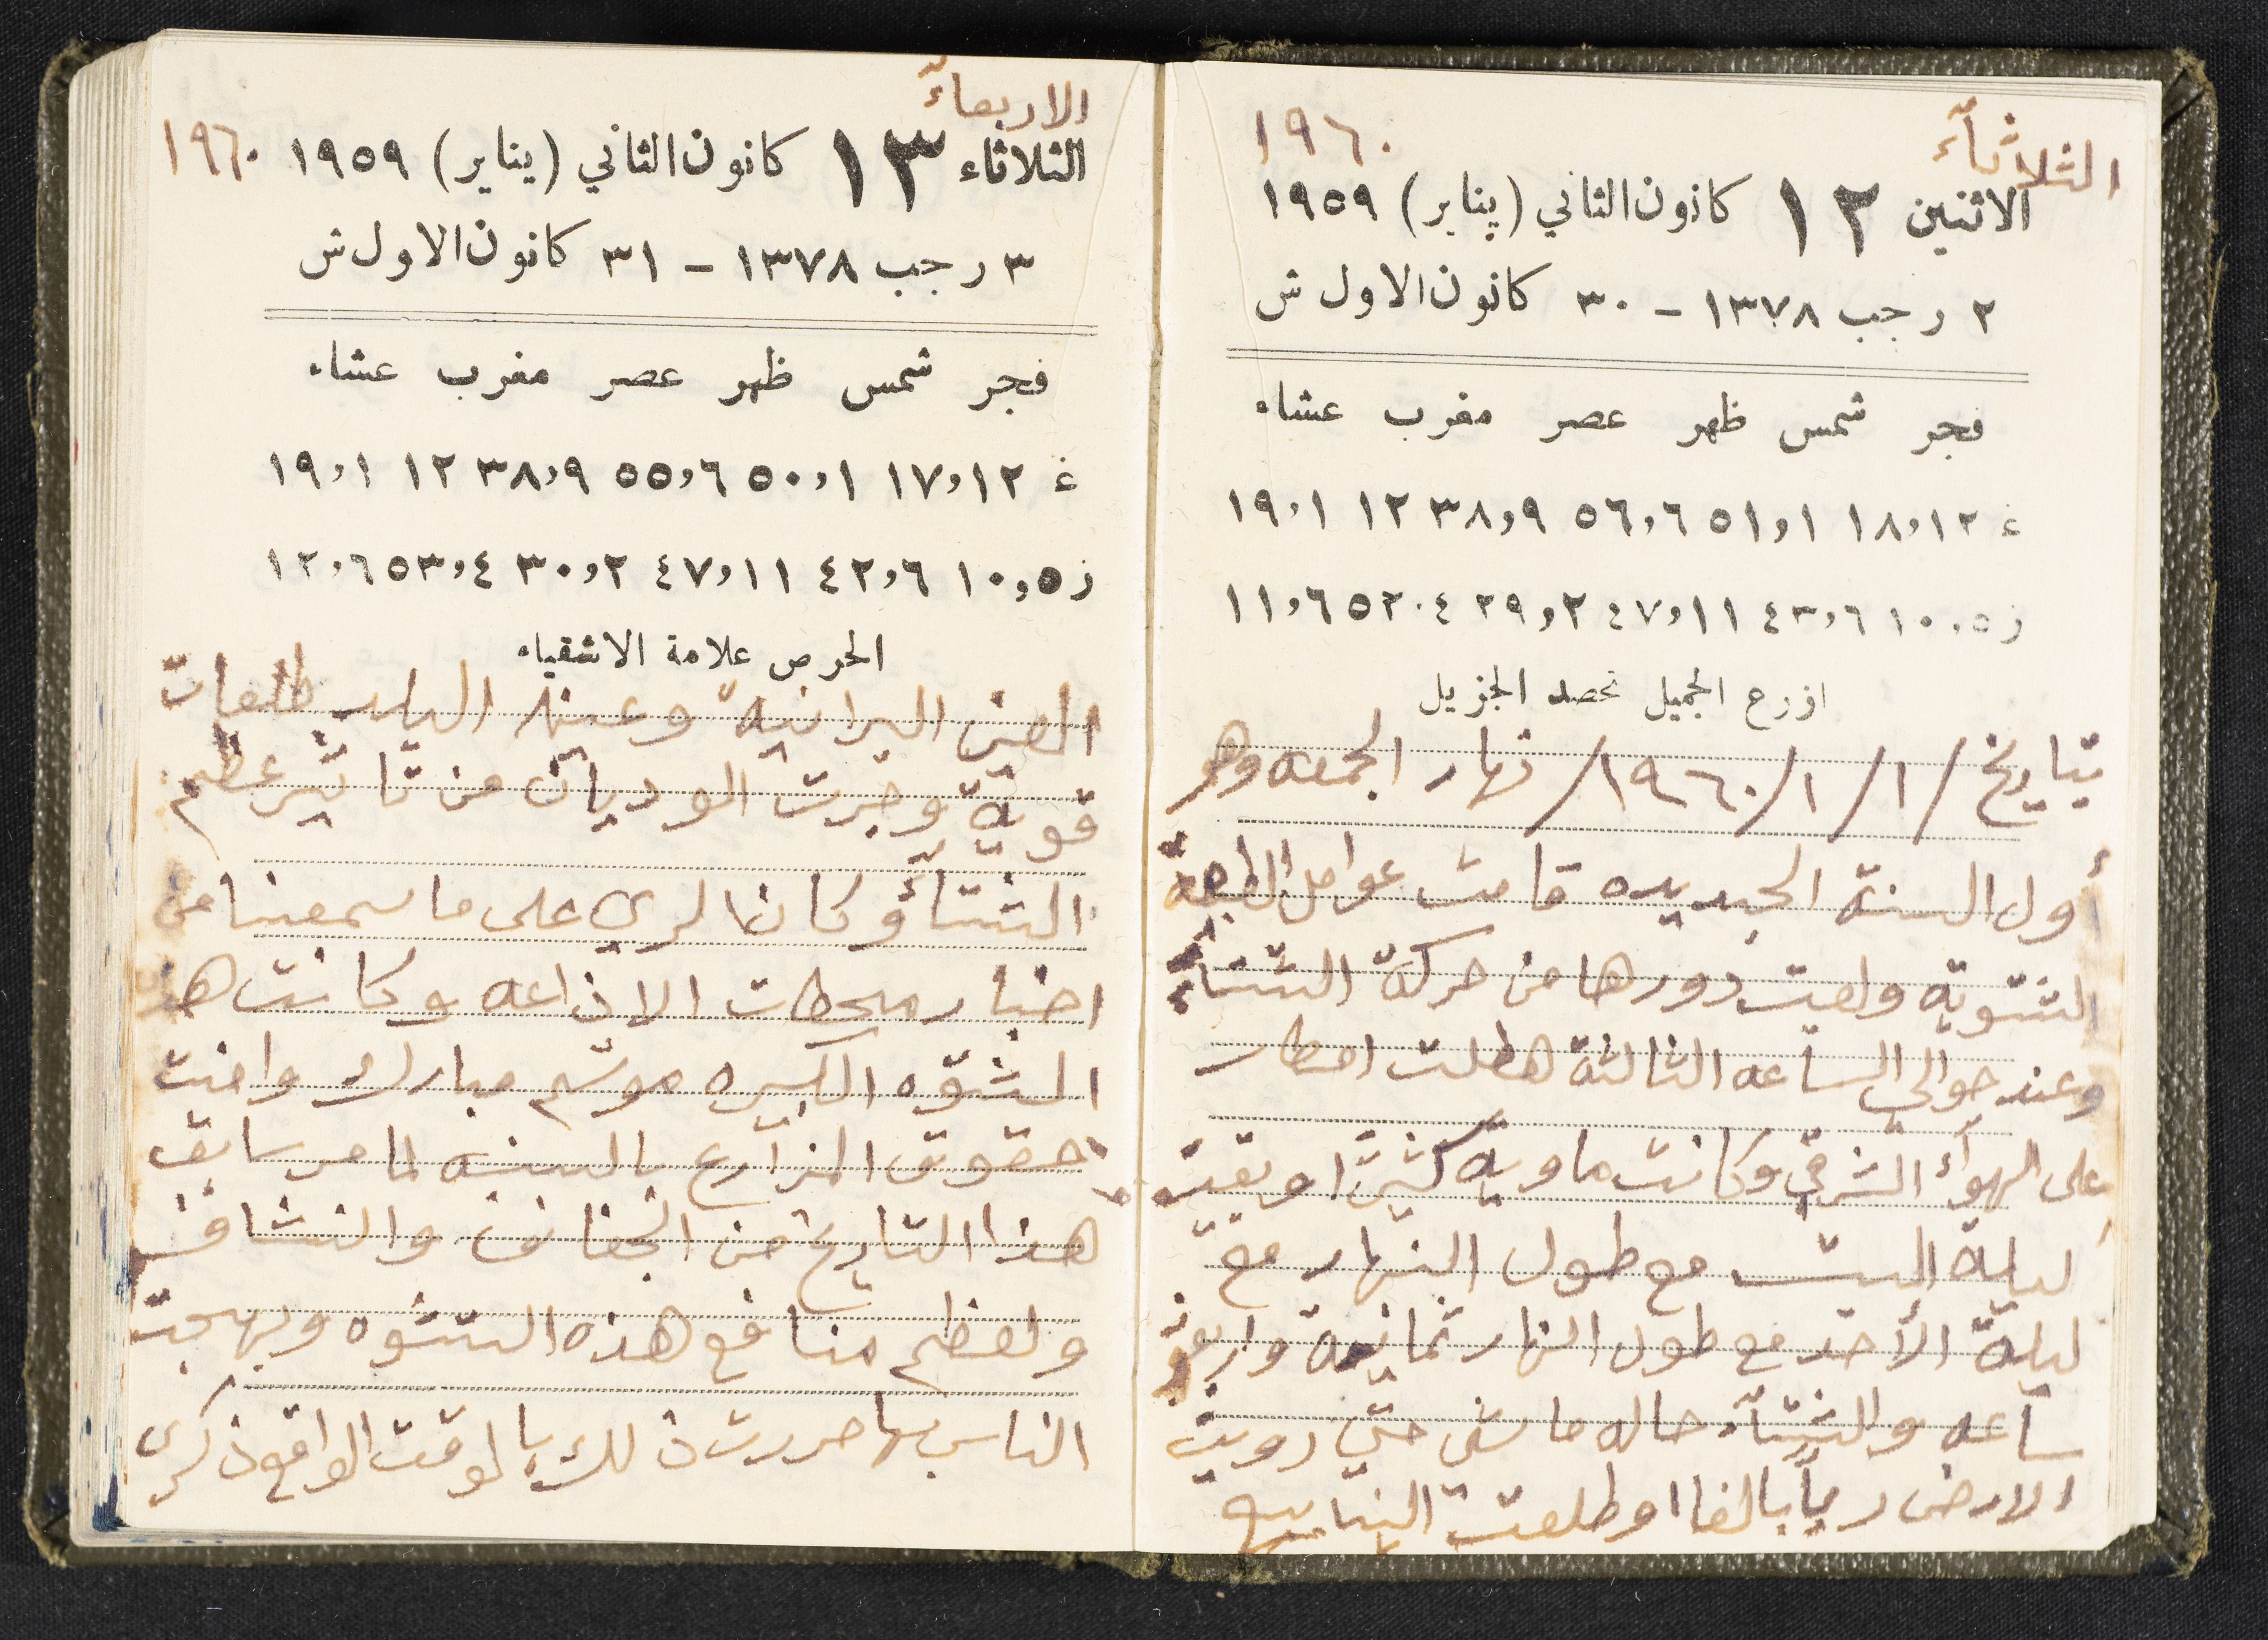 الثلاثآء
١٩٦٠
الاثنين ١٢ كانون الثاني (يناير) ١٩٥٩
٢ رجب ١٣٧٨ - ٣٠ كانون الاول ش
فجر شمس ظهر عصر مغرب عشاء
غ ١٨,١٢ ٥١,١ ٥٦,٦ ٣٨,٩ ١٢ ١٩,١
ز ١٠,٥ ٤٣,٦ ٤٧,١١ ٢٩,٢ ٥٢,٤ ١١,٦
ازرع الجميل تحصد الجزيل
بتاريخ /١/١/١٩٦٠/ نهار الجمعه وهو
أول السنة الجديده قامت عوامل الطبيعة
الشتوية ولعبت دورها من حركة الشتآء
وعند حوالي الساعه الثالثة هطلت امطار
على الهوآء الشرقي وكانت ماوية كثيرًا وبقيت
ليلة السبت مع طول النهار مع
ليلة الأحد مع طول النهار ثمانية واربعون
ساعه والشتآء حاله ماشي حتى رويت
الارض رياً بالغا وطلعت الينابيع
الاربعآء
الثلاثاء ١٣ كانون الثاني (يناير) ١٩٥٩ ١٩٦٠
٣ رجب ١٣٧٨ - ٣١ كانون الاول ش
فجر شمس ظهر عصر مغرب عشاء
غ ١٧,١٢ ٥٠,١ ٥٥,٦ ٣٨,٩ ١٢ ١٩,١
ز ١٠,٥ ٤٢,٦ ٤٧,١١ ٣٠,٢ ٥٣,٤ ١٢,٦
الحرص علامة الاشقياء
العين البرانية وعين البلد طلعات
قوية وجرت الوديان من تاثير عظم
الشتآء وكان الري على ما سمعنا من
اخبار محطات الاذاعه وكانت هذه
الشتوه الكبيره موسم مبارك واخيت
حقوق المزارع بالسنه لما مر سابق
هذا التاريخ من الجفاف والنشاف
ولعظم منافع هذه الشتوه وبهجت
الناس بها حررت ذلك بالوقت الواقع ذكرى